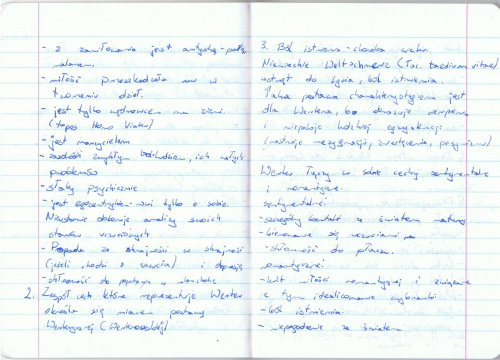 - z zamiłowania jest artystą - poetą,
malarzem.
- miłość przeszkadzała mu w
tworzeniu dzieł.
- jest tylko wędrowcem na ziemi.
(topos Homo Viator)
- jest marzycielem
- zazdrości zwykłym ludziom, ich małych
problemów
- słaby psychicznie
- jest egocentrykiem - mówi tylko o sobie.
Nieustannie dokonuje analizy swoich
stanów uczuciowych
- Popada ze skrajności w skrajność
(jeśli chodzi o uczucia) i depresję
- skłonność do popadania w
2. Zespół cech które reprezentuje Werter
określa się mianem postawy
Werterycznej (Werterowskiej)
3. Ból istnienia - choroba wieku
Niemieckie Weltschmerz (łac. taedium vitae)
wstręt do życia, ból istnienia.
Taka postawa charakterystyczna jest
dla Wertera, bo obrazuje cierpienia
i niepokoje ludzkiej egzystencji
(nastroje rezygnacji, zwątpienia, pesymizmu)
Werter łączy w sobie cechy sentymentalne
i romantyczne.
sentymentalne:
- szczególny kontakt ze światem natury
- kierowanie się uczuciami
- skłonność do płaczu.
romantyczne:
- kult miłości romantycznej i związane
z tym idealizowanie wybranki
- ból istnienia
- niepogodzenie ze światem